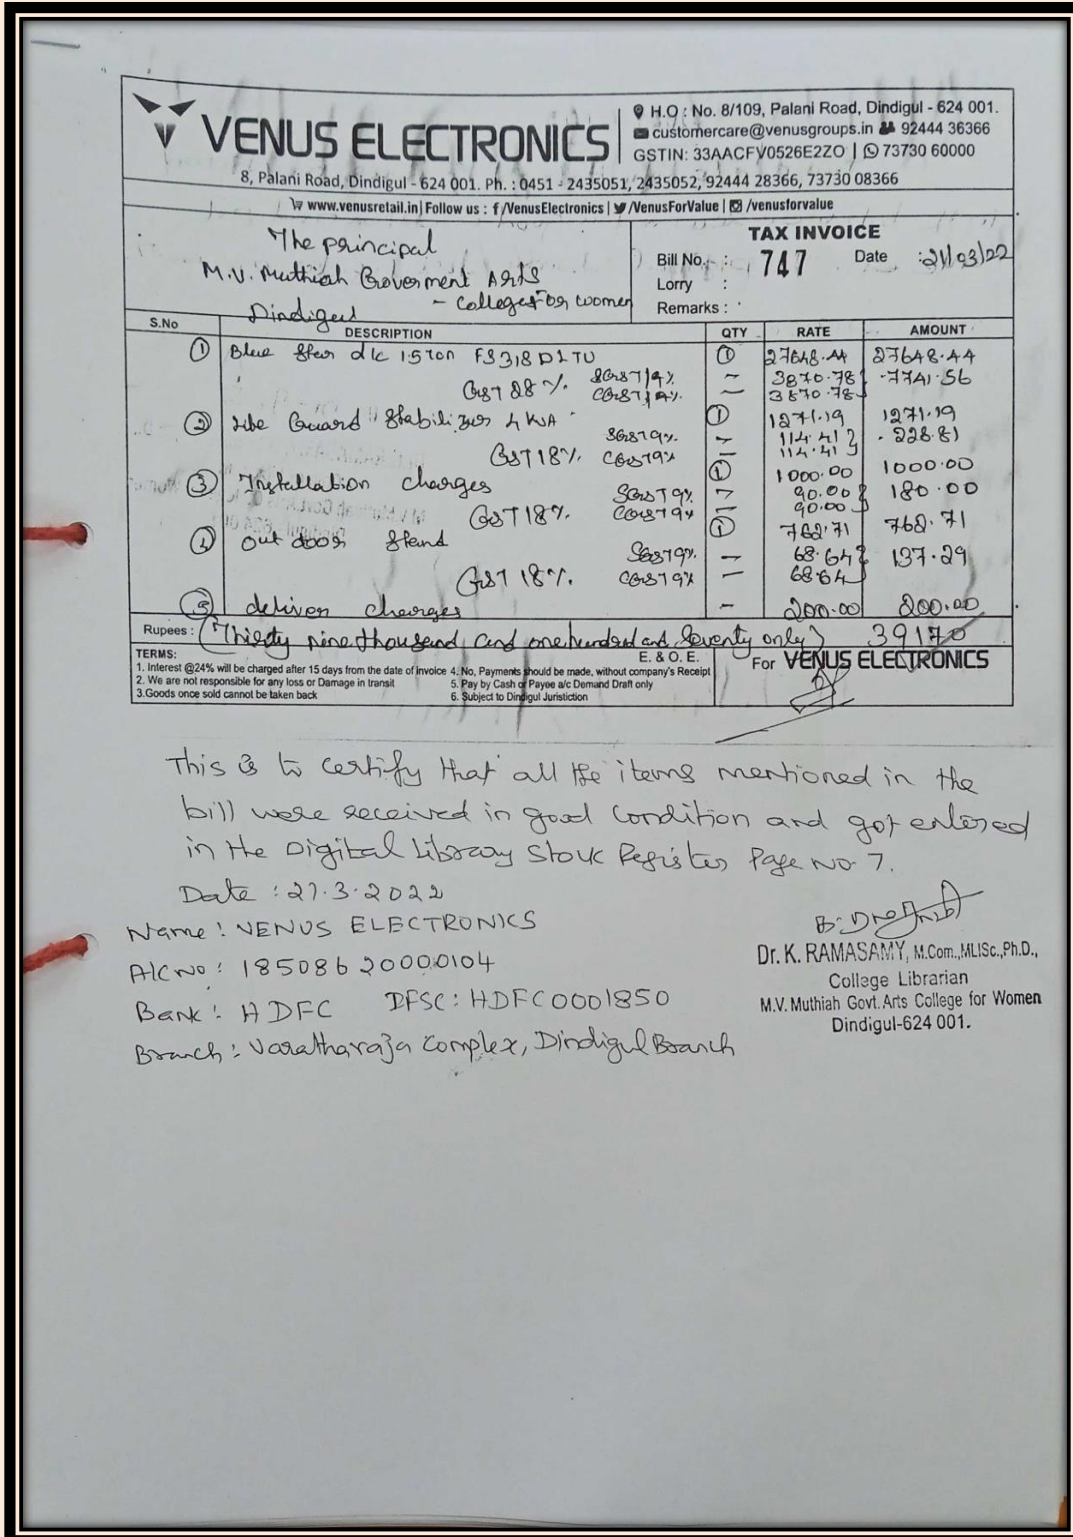 VENUS ELECTRONICS
H.O : No. 8/109, Palani Road, Dindigul - 624 001.
customercare@venusgroups.in 92444 36366
GSTIN: 33AACFV0526E2ZO | 73730 60000
8, Palani Road, Dindigul - 624 001. Ph. : 0451 - 2435051, 2435052, 92444 28366, 73730 08366
www.venusretail.in| Follow us : f /VenusElectronics | /VenusForValue | /venusforvalue
The principal
M.V. Muthiah Goverment Arts
- College for women
Dindigul
TAX INVOICE
Bill No. : 747 Date : 21/03/22
Lorry :
Remarks :
S.No DESCRIPTION QTY RATE AMOUNT
1 Blue Star a/c 1.5 ton FS318DLTU 1 27648.44 27648.44
GST 28 % SGST 14% - 3870.78 7741.56
CGST 14% - 3870.78
2 Guard Stabilizer 4 KVA 1 1271.19 1271.19
GST 18% SGST 9% - 114.41 228.81
CGST 9% - 114.41
3 Installation charges 1 1000.00 1000.00
GST 18% SGST 9% - 90.00 180.00
CGST 9% - 90.00
4 out door stand 1 762.71 762.71
GST 18% SGST 9% - 68.64 137.29
CGST 9% - 68.64
5 deliver charges - 200.00 200.00
Rupees : (Thirty nine thousand and one hundred and Seventy only) 39170
TERMS: E. & O. E.
1. Interest @24% will be charged after 15 days from the date of invoice 4. No, Payments should be made, without company's Receipt
2. We are not responsible for any loss or Damage in transit 5. Pay by Cash or Payee a/c Demand Draft only
3.Goods once sold cannot be taken back 6. Subject to Dindigul Juristiction
For VENUS ELECTRONICS
This is to certify that all the items mentioned in the
bill were received in good condition and got entered
in the Digital Library Stock Register Page No. 7.
Date : 21.3.2022
Name : VENUS ELECTRONICS
A/C No : 18508620000104
Bank : HDFC IFSC : HDFC0001850
Branch : Varatharaja complex, Dindigul Branch
Dr. K. RAMASAMY, M.Com.,MLISc.,Ph.D.,
College Librarian
M.V. Muthiah Govt. Arts College for Women
Dindigul-624 001.